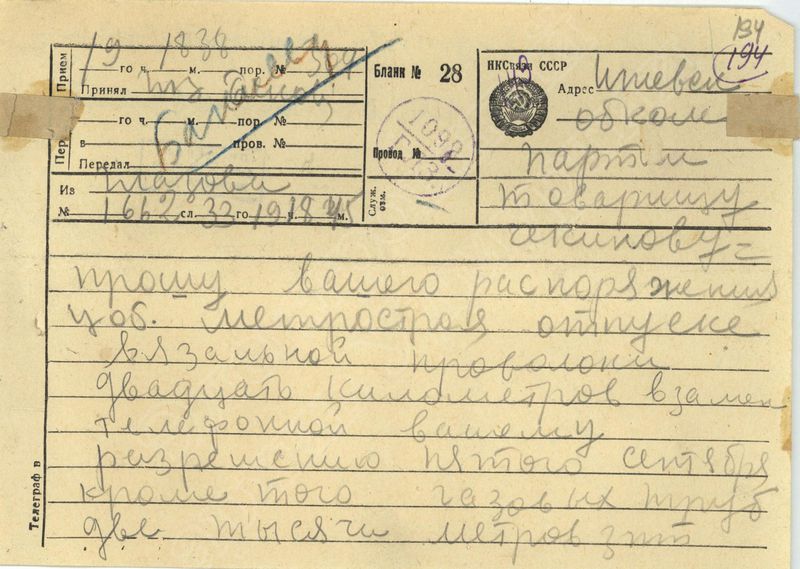 194
194
Прием
19 18 38 309
го ч. м. пор. №
Принял
го ч. м. пор. №
в пров. №
Передал
Из Глазова
№ 1662 сл. 33 го 19 ч. 18 45 м.
Бланк № 28
Провод №
Служ. отм.
НКСвязи СССР
Адрес Ижевск
обком
партии
товарищу
чекинову =
прошу вашего распоряжения
цоб. метростроя отпуске
вязальной проволоки
двадцать километров взамен
телефонной вашему
разрешению пятого сентября
кроме того газовых труб
две тысячи метров зпт
Телеграф в